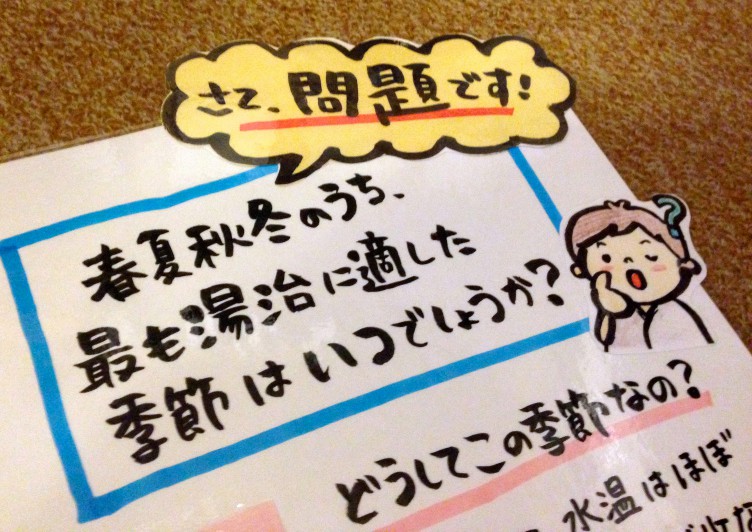 さて、問題です!
春夏秋冬のうち、
最も湯治に適した
季節はいつでしょうか?
?
どうしてこの季節なの?
水温はほぼ